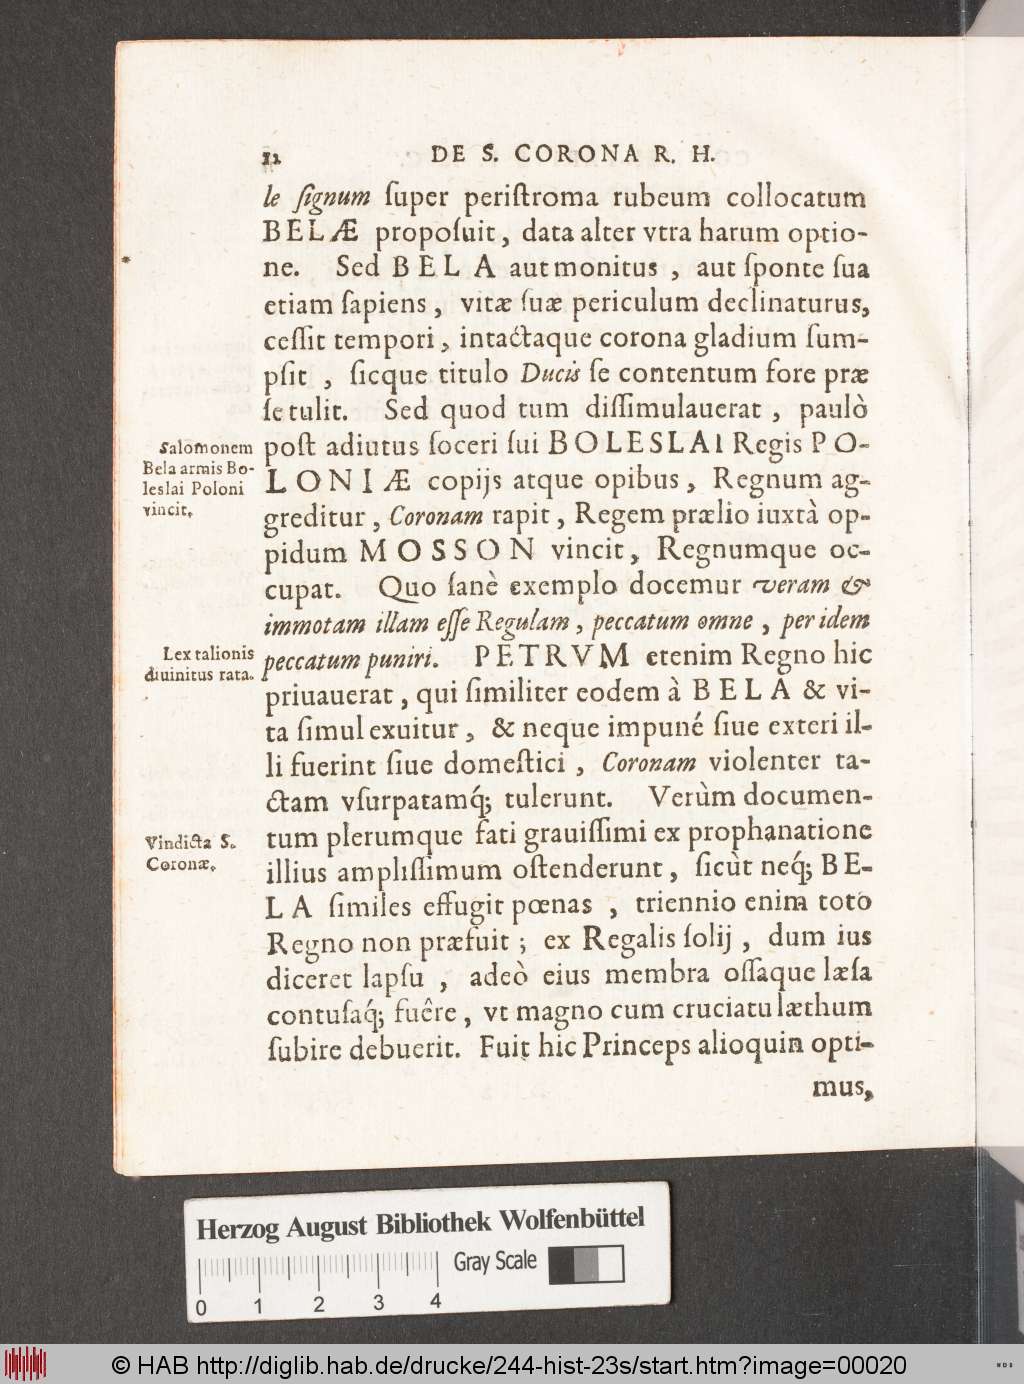 12 DE S. CORONA R. H.
le ſignum ſuper periſtroma rubeum collocatum
BELÆ propoſuit, data alter vtra harum optio-
ne. Sed BELA aut monitus, aut ſponte ſua
etiam ſapiens, vitæ ſuæ periculum declinaturus,
ceſſit tempori, intactaque corona gladium ſum-
pſit, ſicque titulo Ducis ſe contentum fore præ
ſe tulit. Sed quod tum diſſimulauerat, paulò
poſt adiutus ſoceri ſui BOLESLAI Regis PO-
LONIÆ copijs atque opibus, Regnum ag-
greditur, Coronam rapit, Regem prælio iuxtà op-
pidum MOSSON vincit, Regnumque oc-
cupat. Quo ſanè exemplo docemur veram &
immotam illam eſſe Regulam, peccatum omne, per idem
peccatum puniri. PETRVM etenim Regno hic
priuauerat, qui ſimiliter eodem à BELA & vi-
ta ſimul exuitur, & neque impuné ſiue exteri il-
li fuerint ſiue domeſtici, Coronam violenter ta-
ctam vſurpatamq́; tulerunt. Verùm documen-
tum plerumque fati grauiſſimi ex prophanatione
illius ampliſſimum oſtenderunt, ſicùt neq́; BE-
LA ſimiles effugit pœnas, triennio enim toto
Regno non præfuit; ex Regalis ſolij, dum ius
diceret lapſu, adeò eius membra oſſaque læſa
contuſaq́; fuêre, vt magno cum cruciatu læthum
ſubire debuerit. Fuit hic Princeps alioquin opti-
mus,
Salomonem
Bela armis Bo-
leslai Poloni
vincit.
Lex talionis
diuinitus rata.
Vindicta S.
Coronæ.
Herzog August Bibliothek Wolfenbüttel
Gray Scale
0 1 2 3 4
© HAB http://diglib.hab.de/drucke/244-hist-23s/start.htm?image=00020